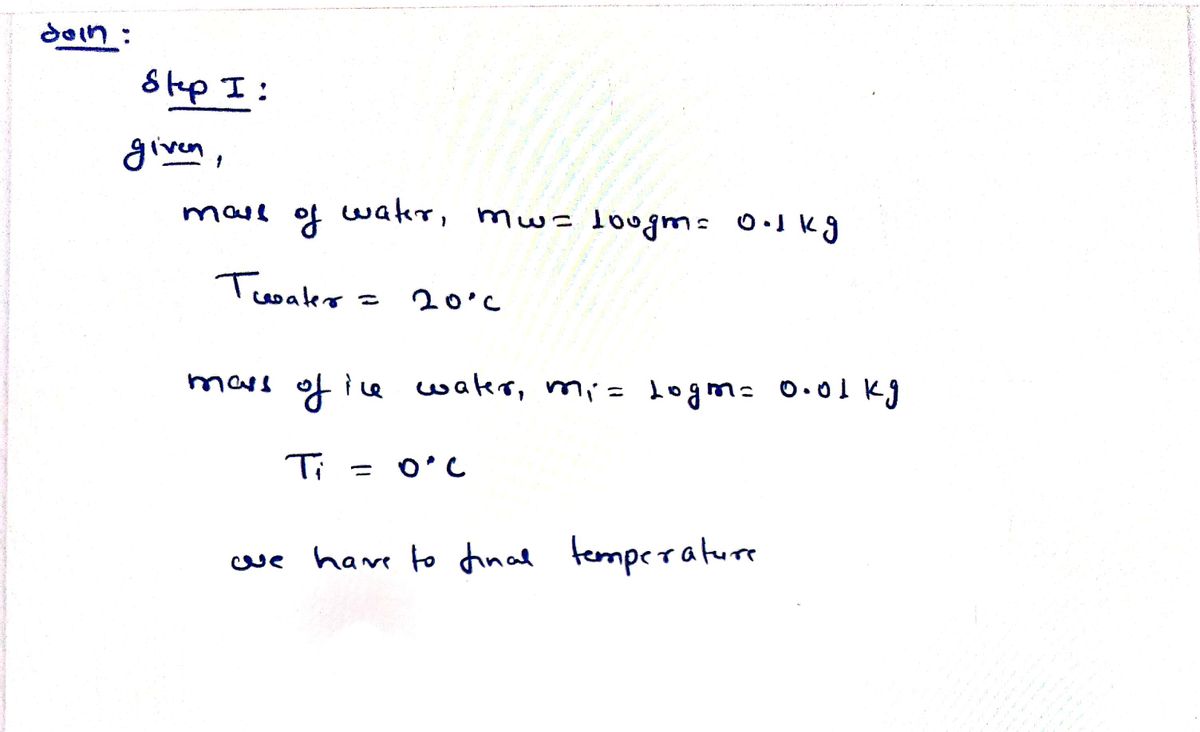 Soln :
Step I :
given,
mass of water, mw = 100gm = 0.1 kg
Twater = 20°C
mass of ice water, mi = 10gm = 0.01 kg
Ti = 0°C
we have to final temperature